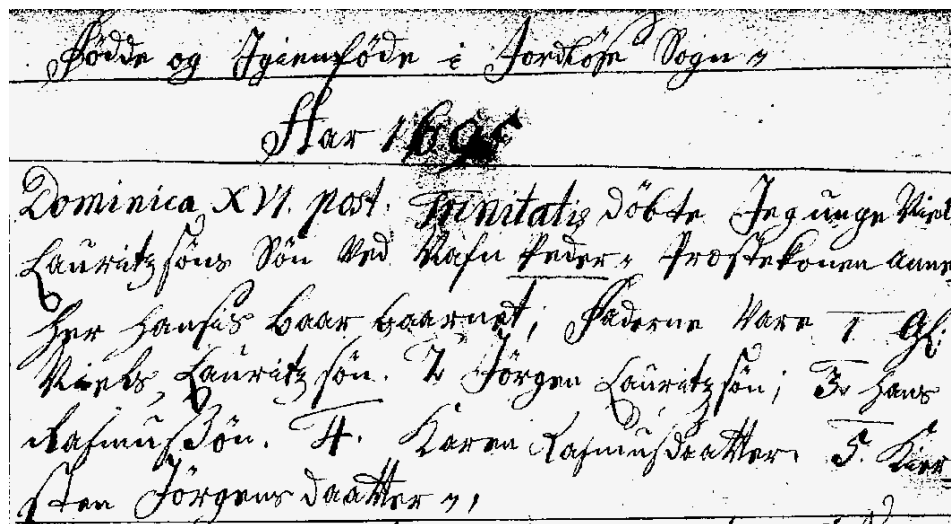 Födde og Igienföde i Jordlöse Sogn
Aar 1695
Dominica XVI. post. Trinitatis döbte Jeg unge Niels
Lauritzsöns Sön ved Nafn Peder, Præstekonen Anne
Her Hansis baar baarnet; Faderne vare 1 Gl:
Niels Lauritzsön. 2 Jörgen Lauritzsön; 3. Hans
Rasmussön. 4. Karen Rasmusdaatter. 5. Kier
sten Jörgens daatter